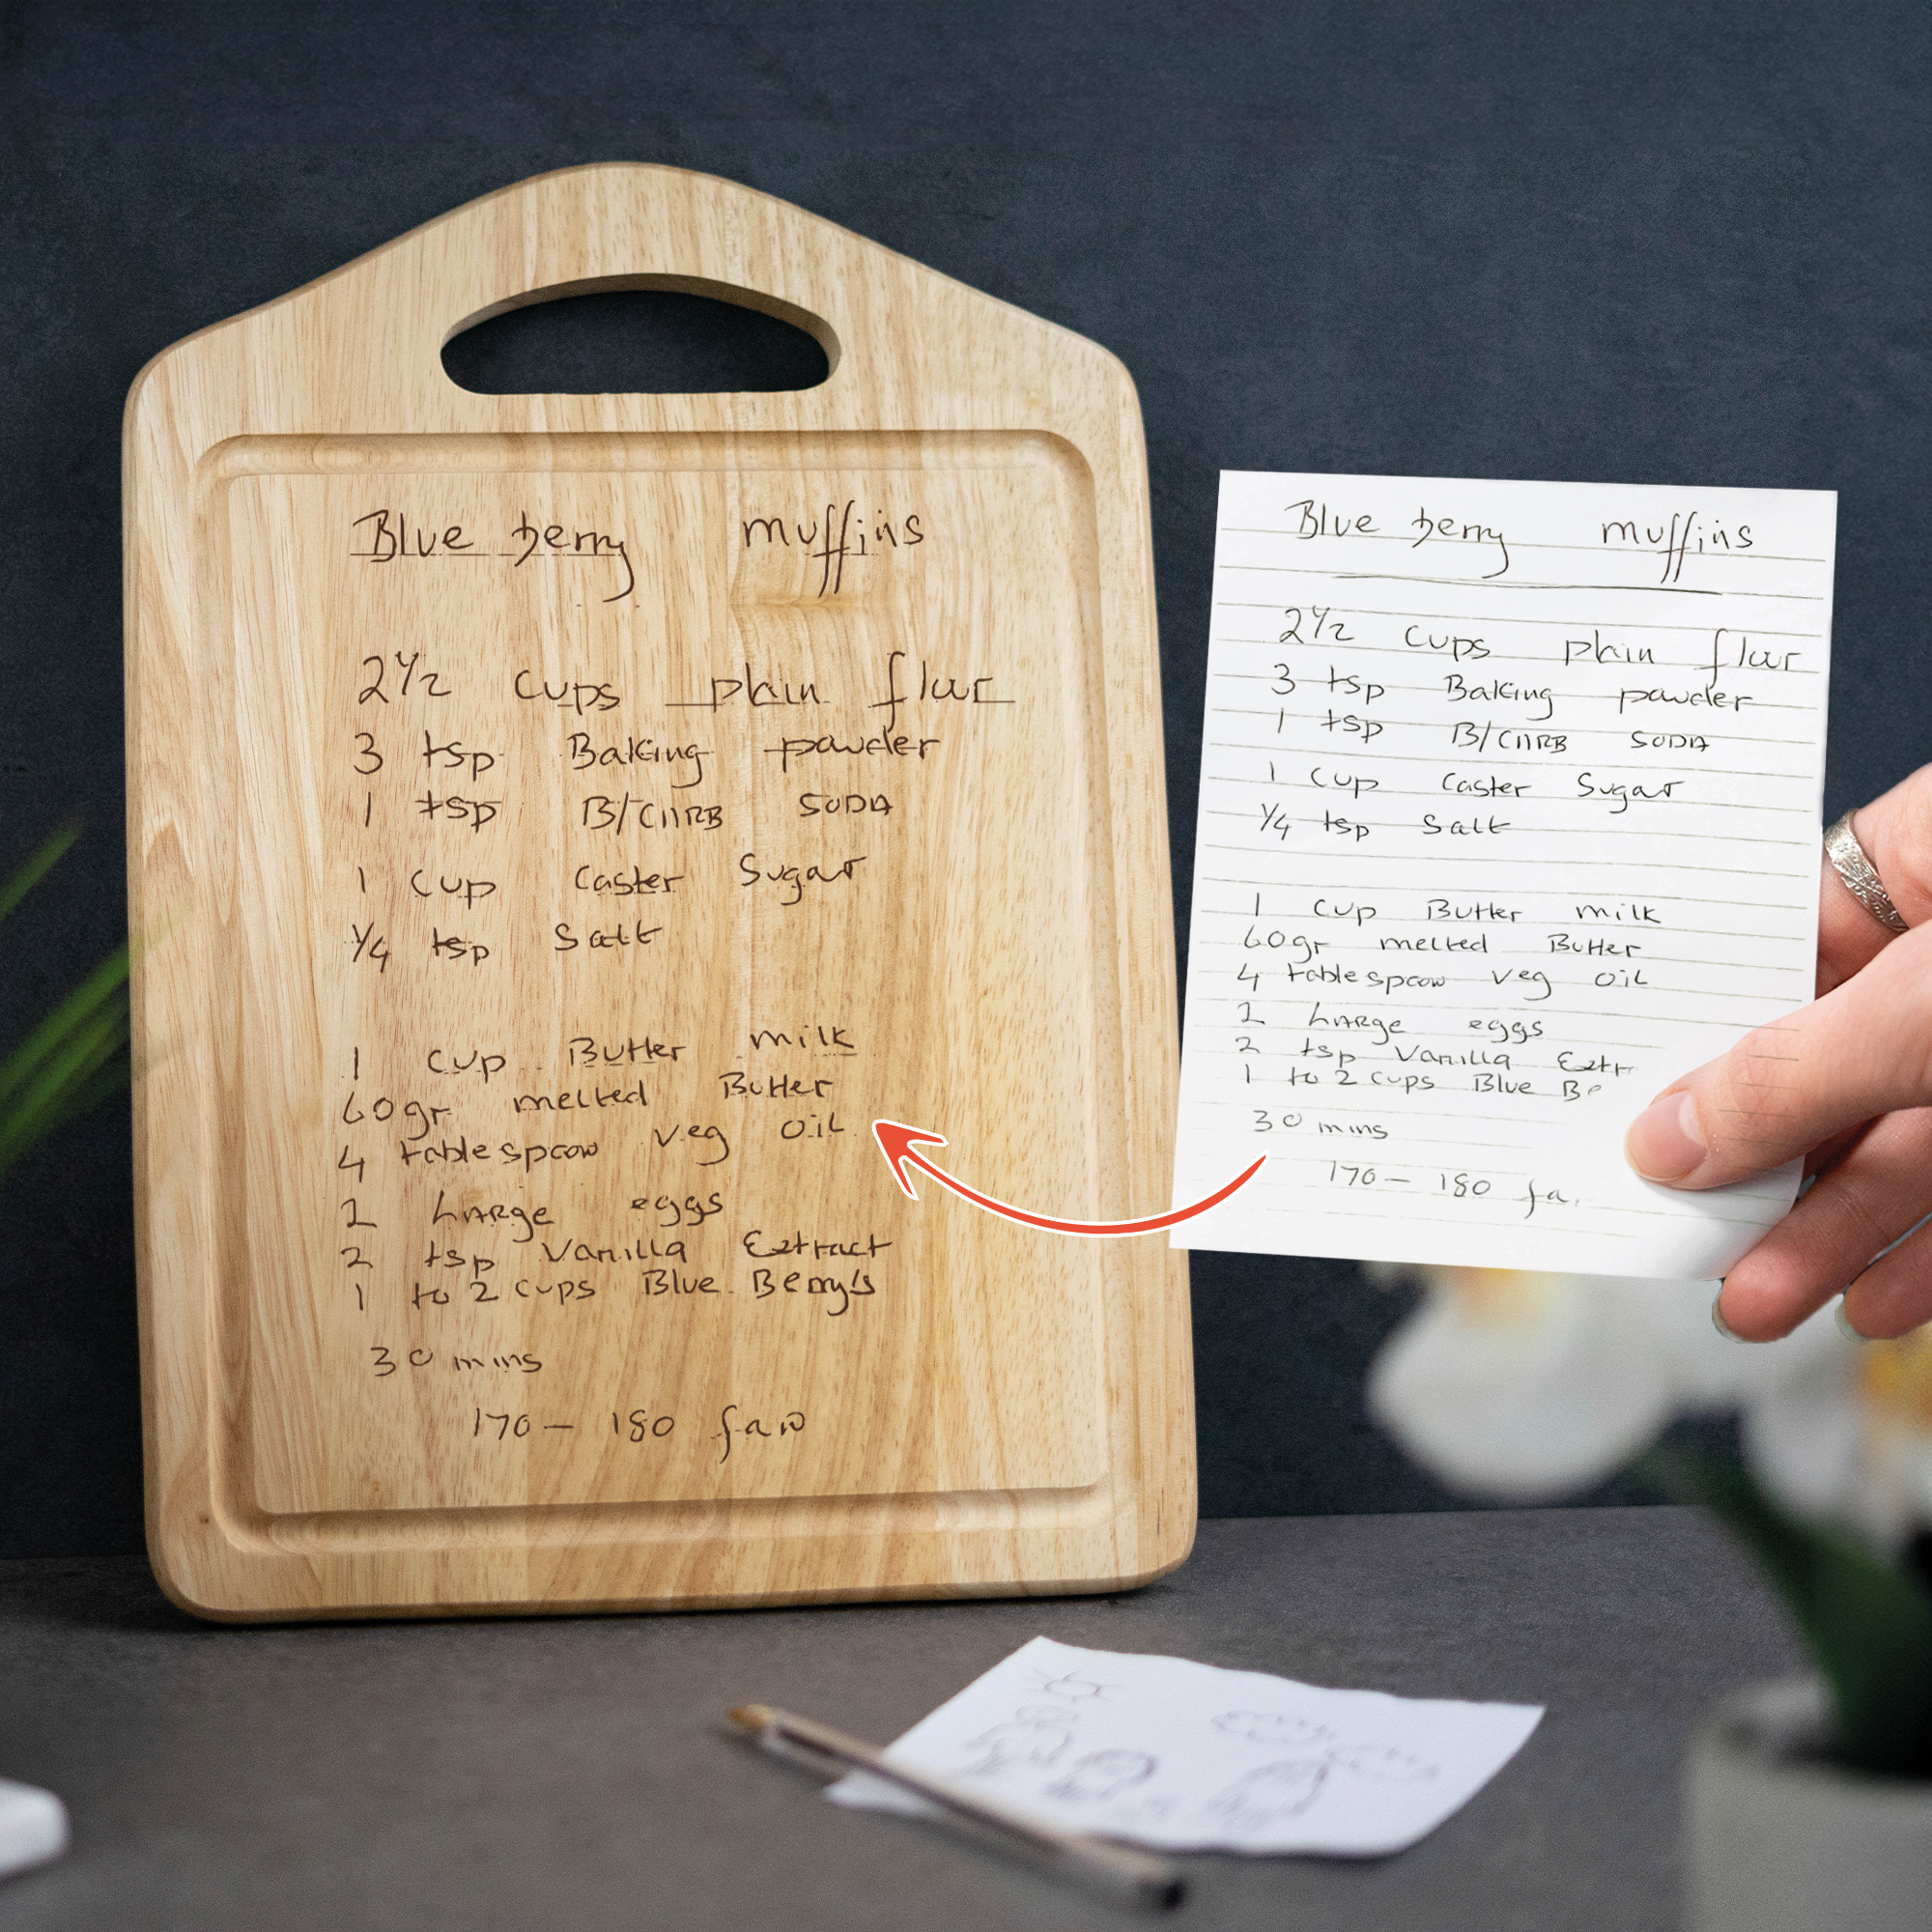 Blue berry muffins
2½ cups plain flour
3 tsp Baking powder
1 tsp B/CARB SODA
1 cup caster Sugar
¼ tsp Salt
1 cup Butter milk
60gr melted Butter
4 tablespoon veg oil
2 LARge eggs
2 tsp Vanilla Extract
1 to 2 cups Blue Berry's
30 mins
170 - 180 fan
Blue berry muffins
2½ cups plain flour
3 tsp Baking powder
1 tsp B/CARB SODA
1 cup caster Sugar
¼ tsp Salt
1 cup Butter milk
60gr melted Butter
4 tablespoon veg oil
2 LARge eggs
2 tsp Vanilla Extr
1 to 2 cups Blue Be
30 mins
170 - 180 fa